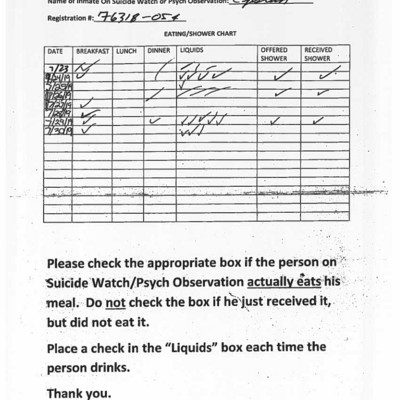 Name of Inmate On Suicide Watch or Psych Observation:
Registration #: 76318-054
EATING/SHOWER CHART
DATE BREAKFAST LUNCH DINNER LIQUIDS OFFERED SHOWER RECEIVED SHOWER
7/23 ✓
Please check the appropriate box if the person on
Suicide Watch/Psych Observation actually eats his
meal. Do not check the box if he just received it,
but did not eat it.
Place a check in the “Liquids” box each time the
person drinks.
Thank you.